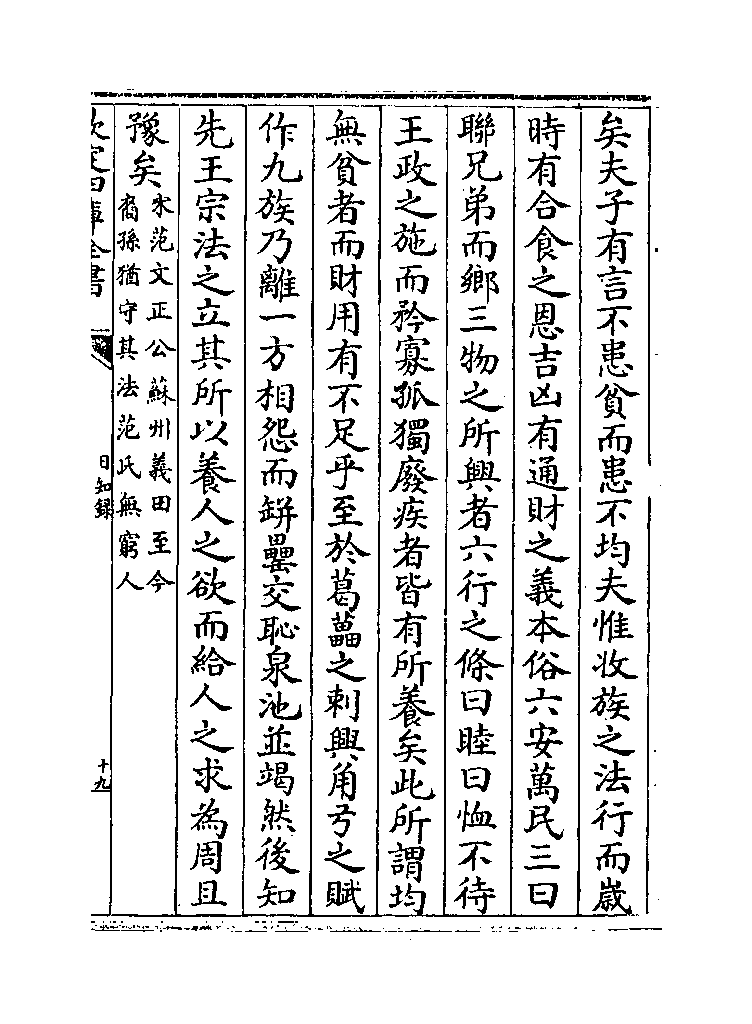 矣夫子有言不患貧而患不均夫惟收族之法行而嵗
時有合食之恩吉凶有通財之義本俗六安萬民三曰
聯兄弟而鄉三物之所興者六行之條曰睦曰恤不待
王政之施而矜寡孤獨廢疾者皆有所養矣此所謂均
無貧者而財用有不足乎至於葛藟之刺興角弓之賦
作九族乃離一方相怨而缾罍交恥泉池並竭然後知
先王宗法之立其所以養人之欲而給人之求為周且
豫矣
宋范文正公蘇州義田至今
裔孫猶守其法范氏無窮人
欽定四庫全書
日知録
十九